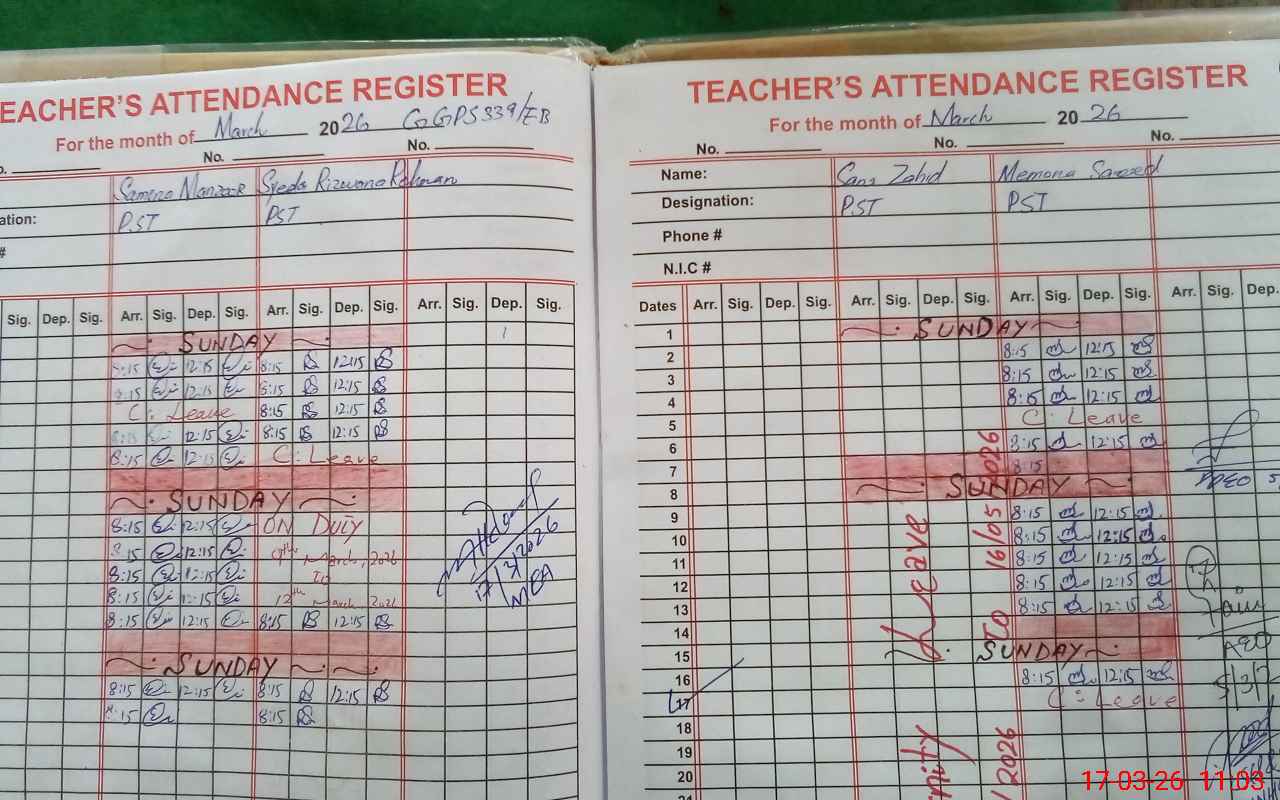 TEACHER'S ATTENDANCE REGISTER
For the month of March 2026 GGPS 339/EB
No. No.
Samena Manzoor Syeda Rizwana Rehman
ation: PST PST
#
Sig. Dep. Sig. Arr. Sig. Dep. Sig. Arr. Sig. Dep. Sig. Arr. Sig. Dep. Sig.
SUNDAY
8:15 12:15 8:15 12:15
8:15 12:15 8:15 12:15
C: Leave 8:15 12:15
8:15 12:15 8:15 12:15
8:15 12:15 C: Leave
SUNDAY
8:15 12:15 ON DUTY
8:15 12:15 9th March, 2026
8:15 12:15 To
8:15 12:15 12th March, 2026
8:15 12:15 8:15 12:15
SUNDAY
8:15 12:15 8:15 12:15
8:15 8:15
17/3/2026
MEA
TEACHER'S ATTENDANCE REGISTER
For the month of March 2026
No. No. No.
Name: Sana Zahid Memona Saeed
Designation: PST PST
Phone #
N.I.C #
Dates Arr. Sig. Dep. Sig. Arr. Sig. Dep. Sig. Arr. Sig. Dep. Sig. Arr. Sig. Dep.
1 SUNDAY
2 8:15 12:15
3 8:15 12:15
4 8:15 12:15
5 C: Leave
6 8:15 12:15
7 8:15
8 SUNDAY
9 8:15 12:15
10 8:15 12:15
11 8:15 12:15
12 8:15 12:15
13 8:15 12:15
14
15 SUNDAY
16 8:15 12:15
17 C: Leave
18
19
20
21
Leave
To 16/05/2026
nity
2026
AEO
17-03-26 11:03